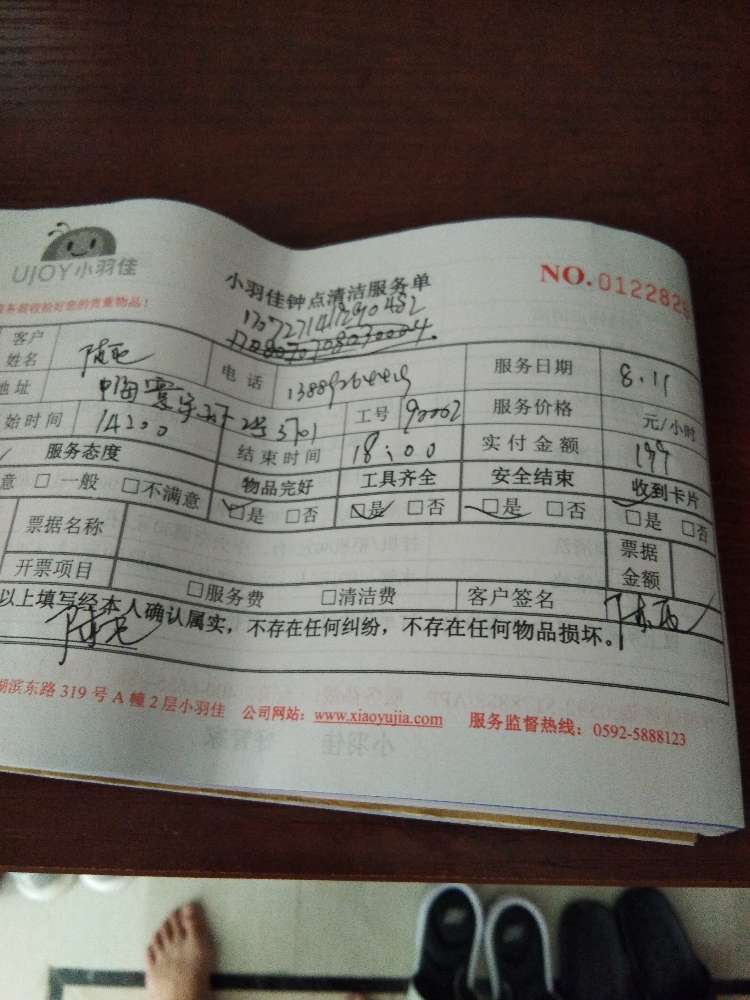 UJOY小羽佳
NO.0122829
小羽佳钟点清洁服务单
务前收拾好您的贵重物品!
客户姓名 电话 服务日期 8.11
地址 工号 90062 服务价格 元/小时
始时间 14:00 结束时间 18:00 实付金额 199
服务态度 物品完好 工具齐全 安全结束 收到卡片
意 □一般 □不满意 □是 □否 □是 □否 □是 □否 □是 □否
票据名称 票据金额
开票项目 □服务费 □清洁费 客户签名
以上填写经本人确认属实，不存在任何纠纷，不存在任何物品损坏。
湖滨东路 319 号 A 幢 2 层小羽佳 公司网站：www.xiaoyujia.com 服务监督热线：0592-5888123